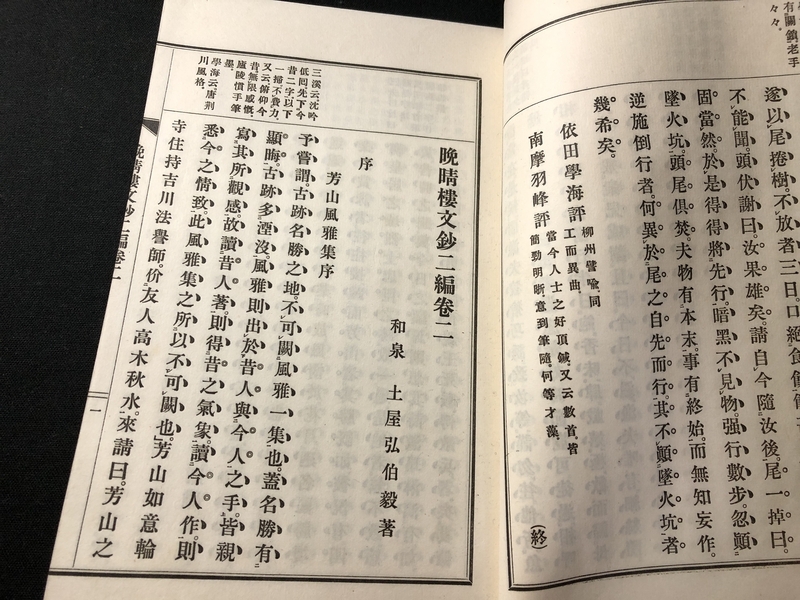 有關鎖老手
々々。
遂以尾捲樹。不放者三日。口絕食
不能聞。頭伏謝曰。汝果雄矣。請自今隨汝後。尾一掉曰。
固當然。於是得得將先行。暗黑不見物。强行數步。忽顚
墜火坑。頭尾俱焚。夫物有本末。事有終始。而無知妄作。
逆施倒行者。何異於尾之自先而行。其不顚墜火坑者
幾希矣。
依田學海評 柳州譬喩、同
工而異曲。
南摩羽峰評 當今人士之好頂鍼。又云數首皆
簡勁明晰意到筆隨。何等才藻。
(終)
晚晴樓文鈔二編卷二
和泉 土屋弘伯毅著
序
芳山風雅集序
予嘗謂。古跡名勝之地。不可闕風雅一集也。蓋名勝有
顯晦。古跡多湮沒。風雅則出於昔人與今人之手。皆親
寫其所觀感。故讀昔人著。則得昔之氣象。讀今人作。則
悉今之情致。此風雅集之所以不可闕也。芳山如意輪
寺住持吉川法譽師。价友人高木秋水。來請曰。芳山之
三溪云沈吟
低回先下今
昔二字以下
一掃不費力
又云俯仰今
昔無限感慨、
廬陵慣手筆
墨。
學海云、唐荊
川風格。
晚晴樓文鈔二編卷二
一